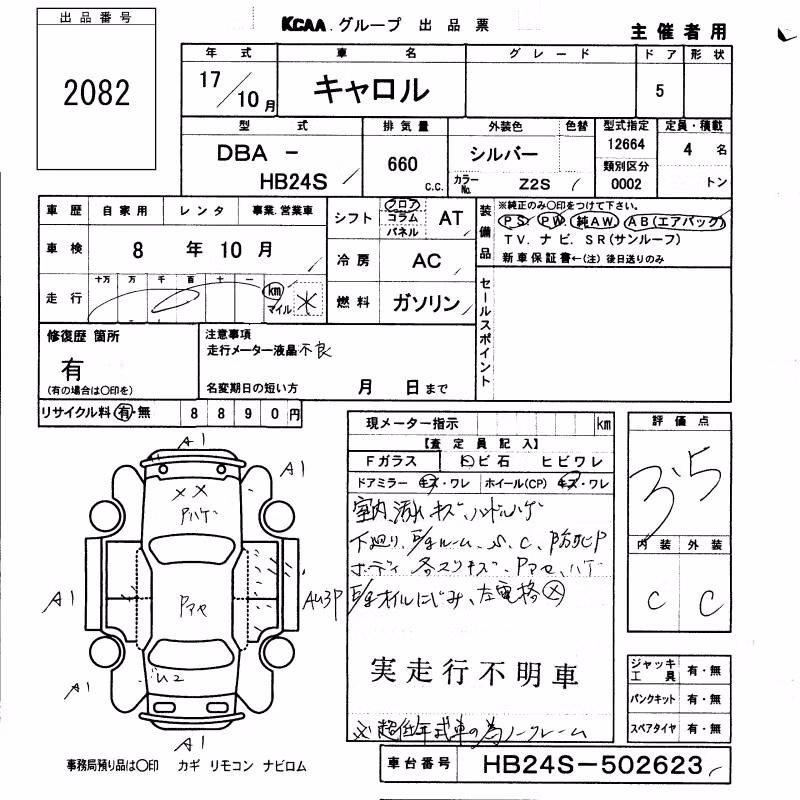 出品番号
2082
KCAA.グループ 出品票
主催者用
年式 車名 グレード ドア 形状
17/10月 キャロル 5
型式 排気量 外装色 色替 型式指定 定員・積載
DBA - 660 シルバー 12664 4 名
類別区分
HB24S C.C. カラーNo. Z2S 0002 トン
車歴 自家用 レンタ 事業.営業車
シフト フロア コラム パネル AT
装備品 ※純正のみ〇印をつけて下さい。
PS. PW. 純AW. AB(エアバック)
TV. ナビ. SR(サンルーフ)
新車保証書←(注) 後日送りのみ
車検 8 年 10 月
冷房 AC
走行 十万 万 千 百 十 一 km マイル ✳
燃料 ガソリン
セールスポイント
修復歴 箇所
有
(有の場合は〇印を)
注意事項
走行メーター液晶不良
名変期日の短い方 月 日まで
リサイクル料 有・無 8890円
現メーター指示 km
【査定員記入】
Fガラス トビ石 ヒビワレ
ドアミラー キズ・ワレ ホイール(CP) キズ・ワレ
評価点
3.5
内装 外装
C C
A1
A1
A1
A1
A1
A1
××
Pマセ
AU3P
U2
実走行不明車
ジャッキ工具 有・無
パンクキット 有・無
スペアタイヤ 有・無
事務局預り品は〇印 カギ リモコン ナビロム
車台番号 HB24S-502623